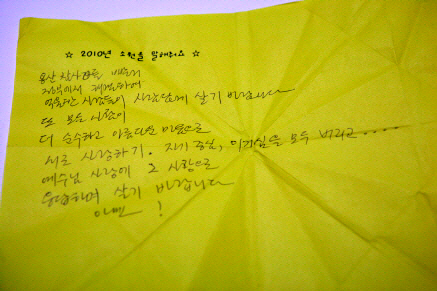 ☆ 2010년 소원을 말해줘요 ☆
용산 참사를
정부에서 해결하여
억울한 사람들이 사람답게 살기 바랍니다
또 모든 사람이
더 순수하고 아름다운 마음으로
서로 사랑하기. 자기중심, 이기심을 모두 버리고....
예수님 사랑에 그 사랑으로
응답하며 살기 바랍니다
아멘 !